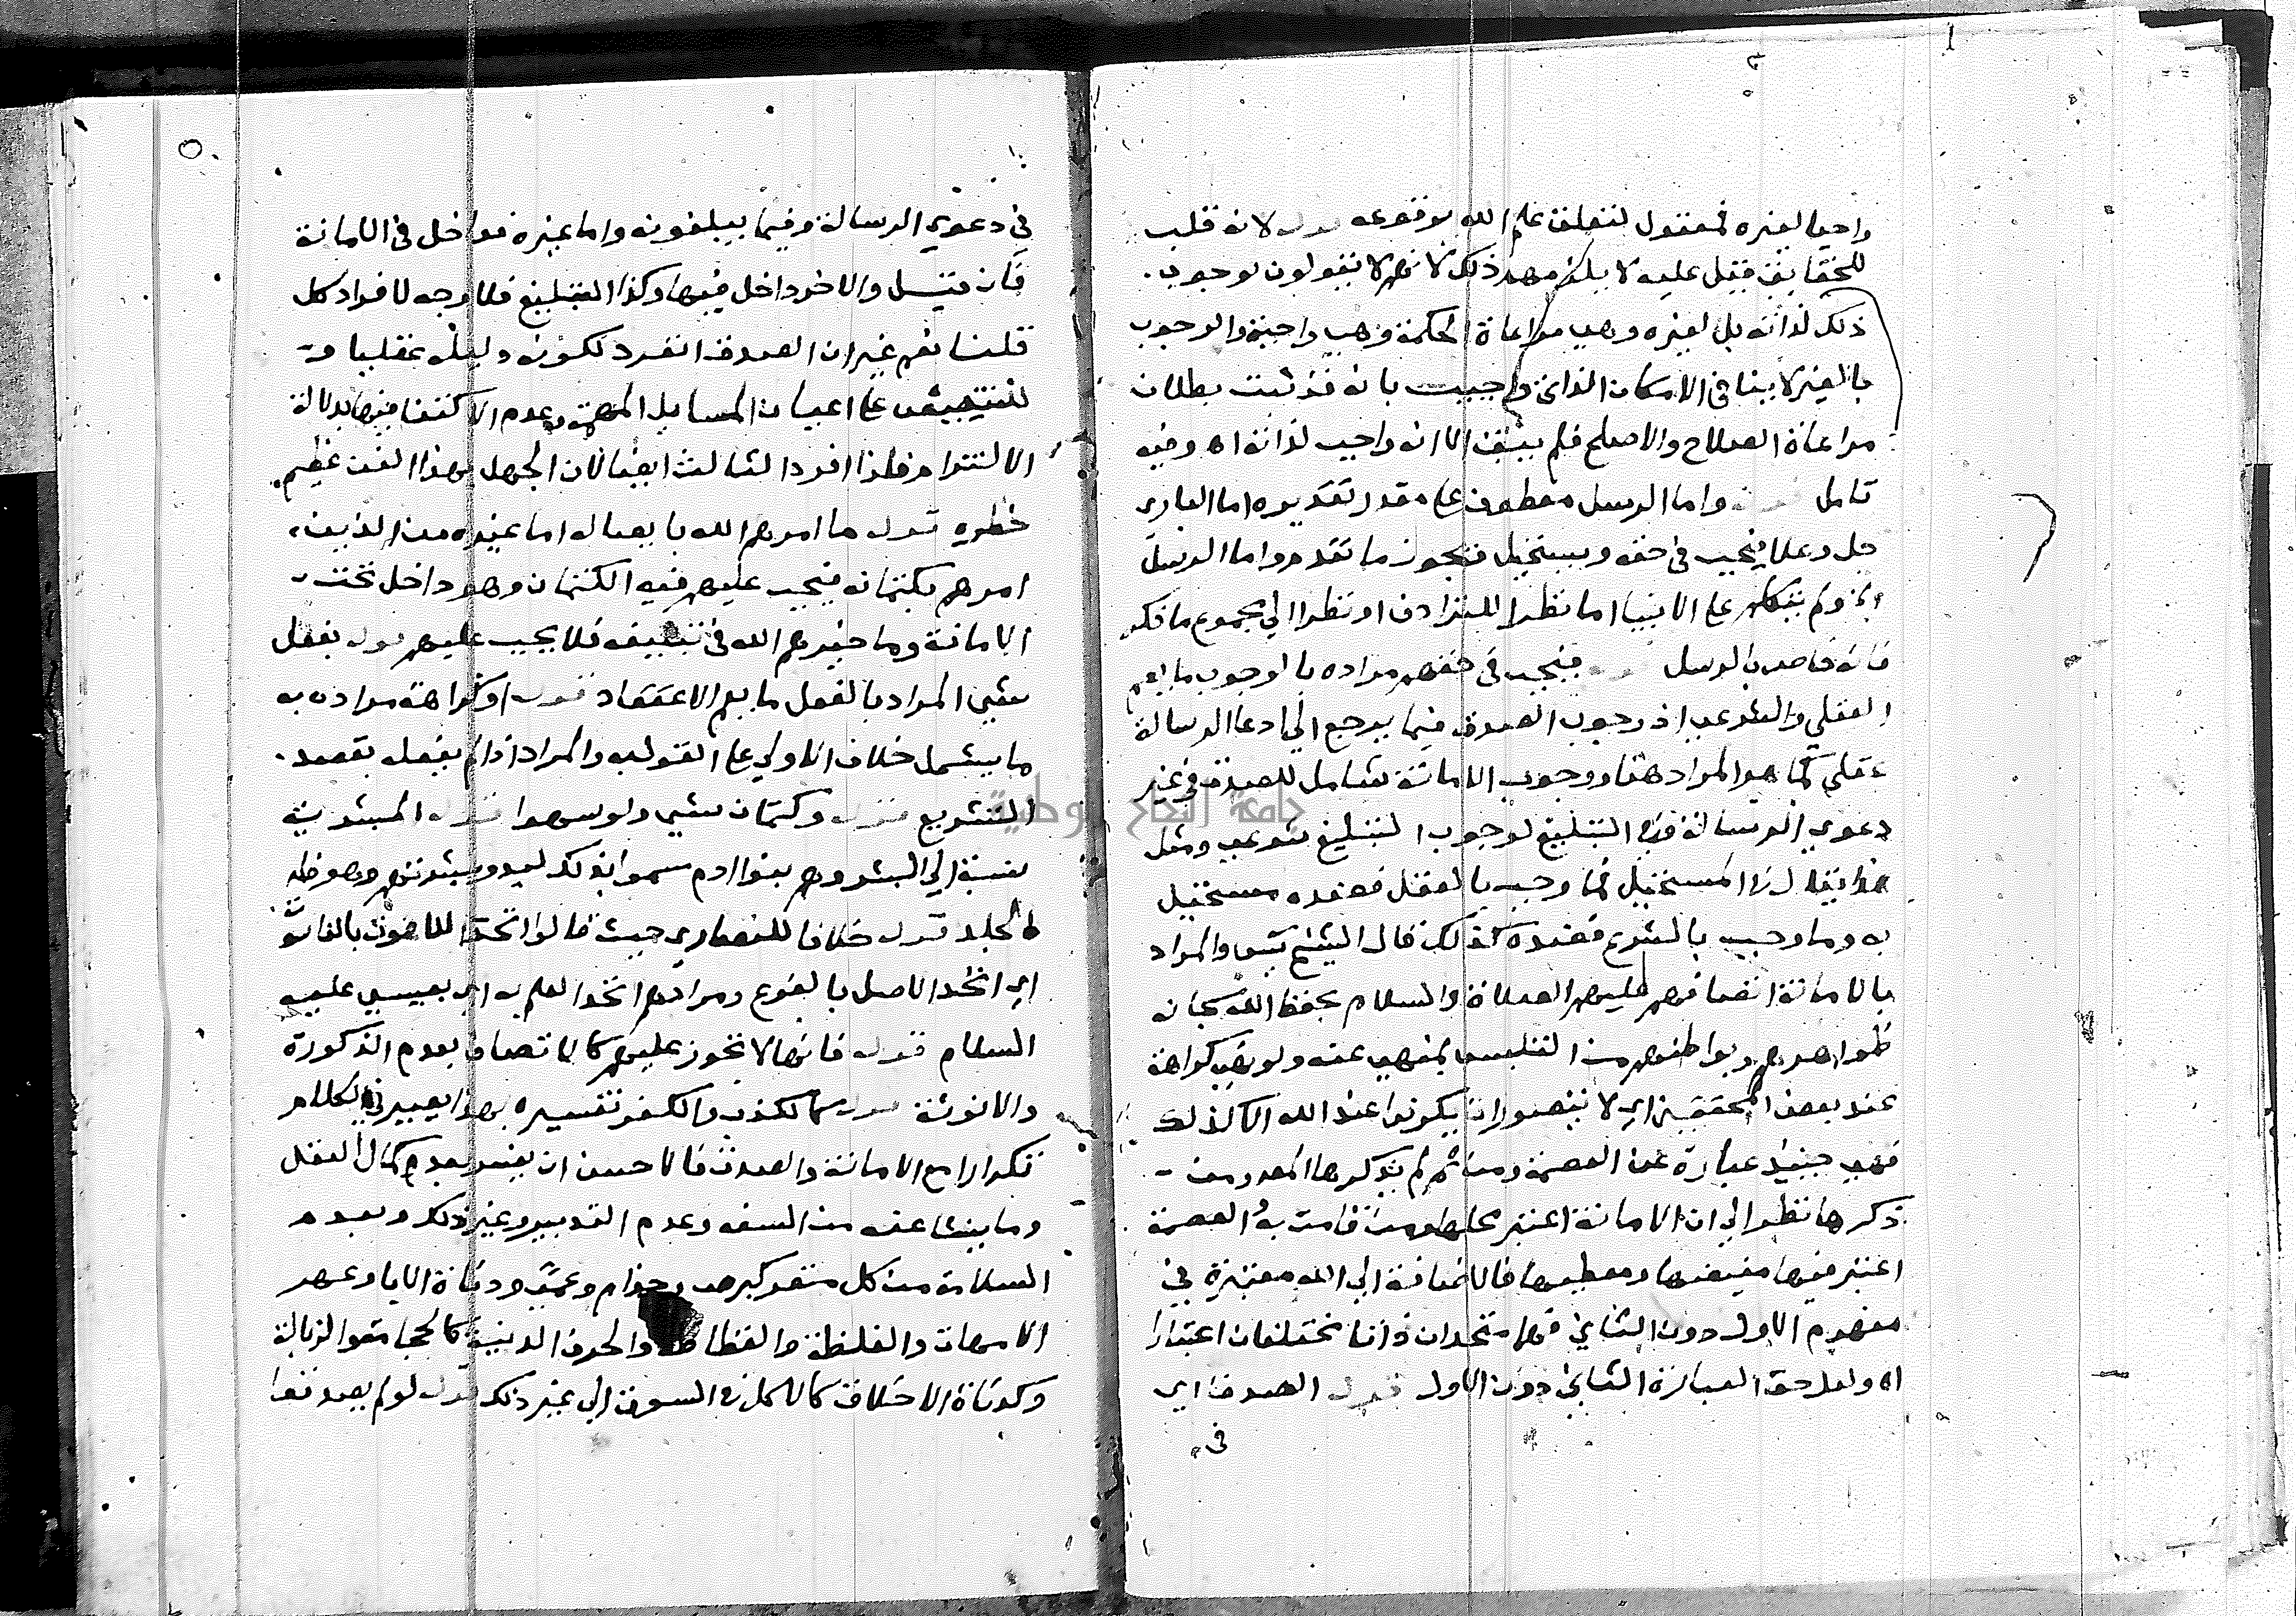 واجبا لغيره فمعقول لتعلق علم الله بوقوعه قوله لانه قلب
للحقايق قيل عليه لا يلزمهم ذلك لانهم لا يقولون بوجوب
ذلك لذاته بل لغيره وهي مراعاة الحكمة وهي واجبة والوجوب
بالغير لا ينافي الامكان الذاتي واجيب بانه قد ثبت بطلان
مراعاة الصلاح والاصلح فلم يبق الا انه واجب لذاته اه وفيه
تامل قوله واما الرسل معطوف على مقدر تقديره اما الباري
جل وعلا فيجب في حقه ويستحيل ويجوز ما تقدم واما الرسل
ولم يتكلم على الانبيا اما نظرا للترادف او نظرا الي مجموع ما ذكر
فانه خاص بالرسل قوله فيجب في حقهم مراده بالوجوب ما يعم
العقلي والشرعي اذ وجوب الصدق فيما يرجع الي ادعا الرسالة
عقلي كما هو المراد هنا ووجوب الامانة شامل للصدق في غير
دعوي الرسالة وفي التبليغ لوجوب التبليغ شرعي ومثل
هذا يقال في المستحيل فما وجب بالعقل فضده مستحيل
به وما وجب بالشرع فضده كذلك قال الشيخ يس والمراد
بالامانة اتصافهم عليهم الصلاة والسلام بحفظ الله سبحانه
ظواهرهم وبواطنهم من التلبس بمنهي عنه ولو نهي كراهة
عند بعض المحققين اي لا يتصور ان يكونوا عند الله الا كذلك
فهي حينئذ عبارة عن العصمة ومن ثم لم يذكرها المص ومن
ذكرها نظر الي ان الامانة اعتبر محلها ومن قامت به والعصمة
اعتبر فيها مفيضها ومعطيها فالاضافة الي الله معتبرة في
مفهوم الاول دون الثاني فهما متحدان ذاتا مختلفان اعتبارا
اه ولعل حق العبارة الثاني دون الاول قوله الصدق اي
في
في دعوي الرسالة وفيما يبلغونه واما غيره فداخل في الامانة
فان قيل والاخر داخل فيها وكذا التبليغ فلا وجه لافراد كل
قلنا نعم غير ان الصدق انفرد لكونه دليله عقليا و
للتنصيص على اعيان المسايل المهمة وعدم الاكتفا فيها بدلالة
الالتزام فلذا افرد الثالث ايضا لان الجهل بهذا الفن عظيم
خطره قوله ما امرهم الله بايصاله اما غيره من الذين
امرهم بكتمانه فيجب عليهم فيه الكتمان وهو داخل تحت
الامانة وما خيرهم الله في تبليغه فلا يجب عليهم قوله بفعل
شي المراد بالفعل ما يعم الاعتقاد قوله او كراهة مراده به
ما يشمل خلاف الاولي على القول به والمراد اذا لم يفعله بقصد
التشريع قوله وكتمان شي ولو سهوا قوله البشرية
نسبة الي البشر وهم بنوا ادم سموا بذلك لبدو بشرتهم وهو ظاهر
الجلد قوله خلافا للنصاري حيث قالوا اتحد اللاهوت بالناسوت
اي اتحد الاصل بالفرع ومرادهم اتحد العلم به اي بعيسي عليه
السلام قوله فانها لا تجوز عليهم كالاتصاف بعدم الذكورة
والانوثة قوله كالكذب والكفر تفسيره بهذا يصير في الكلام
تكرارا مع الامانة والصدق فالاحسن ان يفسر بعدم كمال العقل
وما ينشا عنه من السفه وعدم التدبير وغير ذلك وبعدم
السلامة من كل منفر كبرص وجذام وعمي ودناة الابا وعهر
الامهات والغلظة والفظاظة والحرف الدنية كالحجامة والزبالة
وكدناة الاخلاق كالاكل في السوق الي غير ذلك قوله لو لم يصدقوا